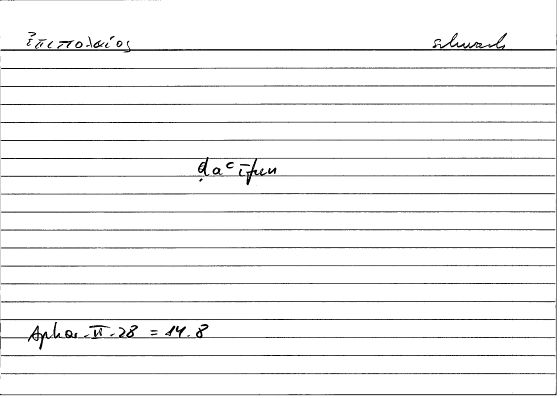 Ἐπιπολαίος schwach
ḍaʿīfun
Aphor. II. 28 = 14.8